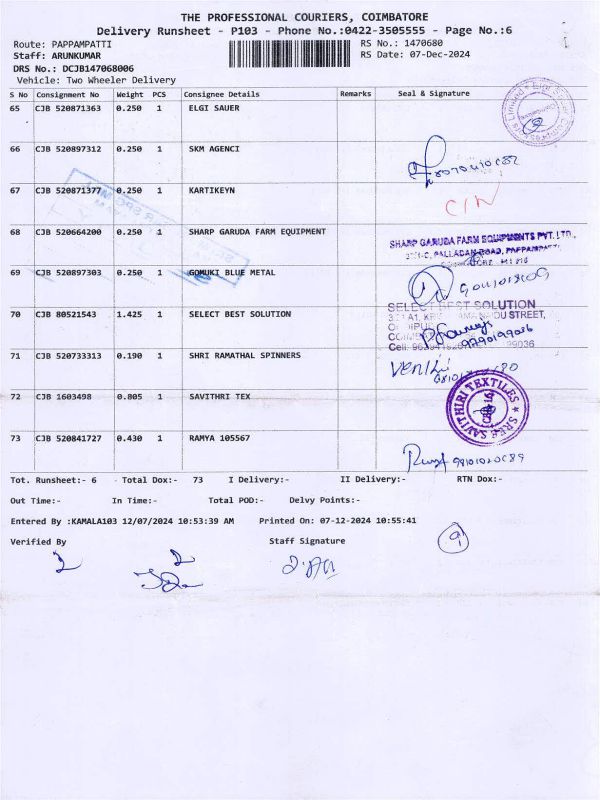 THE PROFESSIONAL COURIERS, COIMBATORE
Delivery Runsheet - P103 - Phone No.:0422-3505555 - Page No.:6
Route: PAPPAMPATTI RS No.: 1470680
Staff: ARUNKUMAR RS Date: 07-Dec-2024
DRS No.: DCJB147068006
Vehicle: Two Wheeler Delivery
S No Consignment No Weight PCS Consignee Details Remarks Seal & Signature
65 CJB 520871363 0.250 1 ELGI SAUER
66 CJB 520897312 0.250 1 SKM AGENCI
67 CJB 520871377 0.250 1 KARTIKEYN
C/N
68 CJB 520664200 0.250 1 SHARP GARUDA FARM EQUIPMENT
SHARP GARUDA FARM EQUIPMENTS PVT. LTD.,
PALLADAM ROAD, PAPPAMPATTI
69 CJB 520897303 0.250 1 GOMUKI BLUE METAL
70 CJB 80521543 1.425 1 SELECT BEST SOLUTION
SELECT BEST SOLUTION
STREET,
71 CJB 520733313 0.190 1 SHRI RAMATHAL SPINNERS
72 CJB 1603498 0.805 1 SAVITHRI TEX
SREE SAVITHIRI TEXTILES
73 CJB 520841727 0.430 1 RAMYA 105567
Tot. Runsheet:- 6 Total Dox:- 73 I Delivery:- II Delivery:- RTN Dox:-
Out Time:- In Time:- Total POD:- Delvy Points:-
Entered By :KAMALA103 12/07/2024 10:53:39 AM Printed On: 07-12-2024 10:55:41
Verified By Staff Signature
9